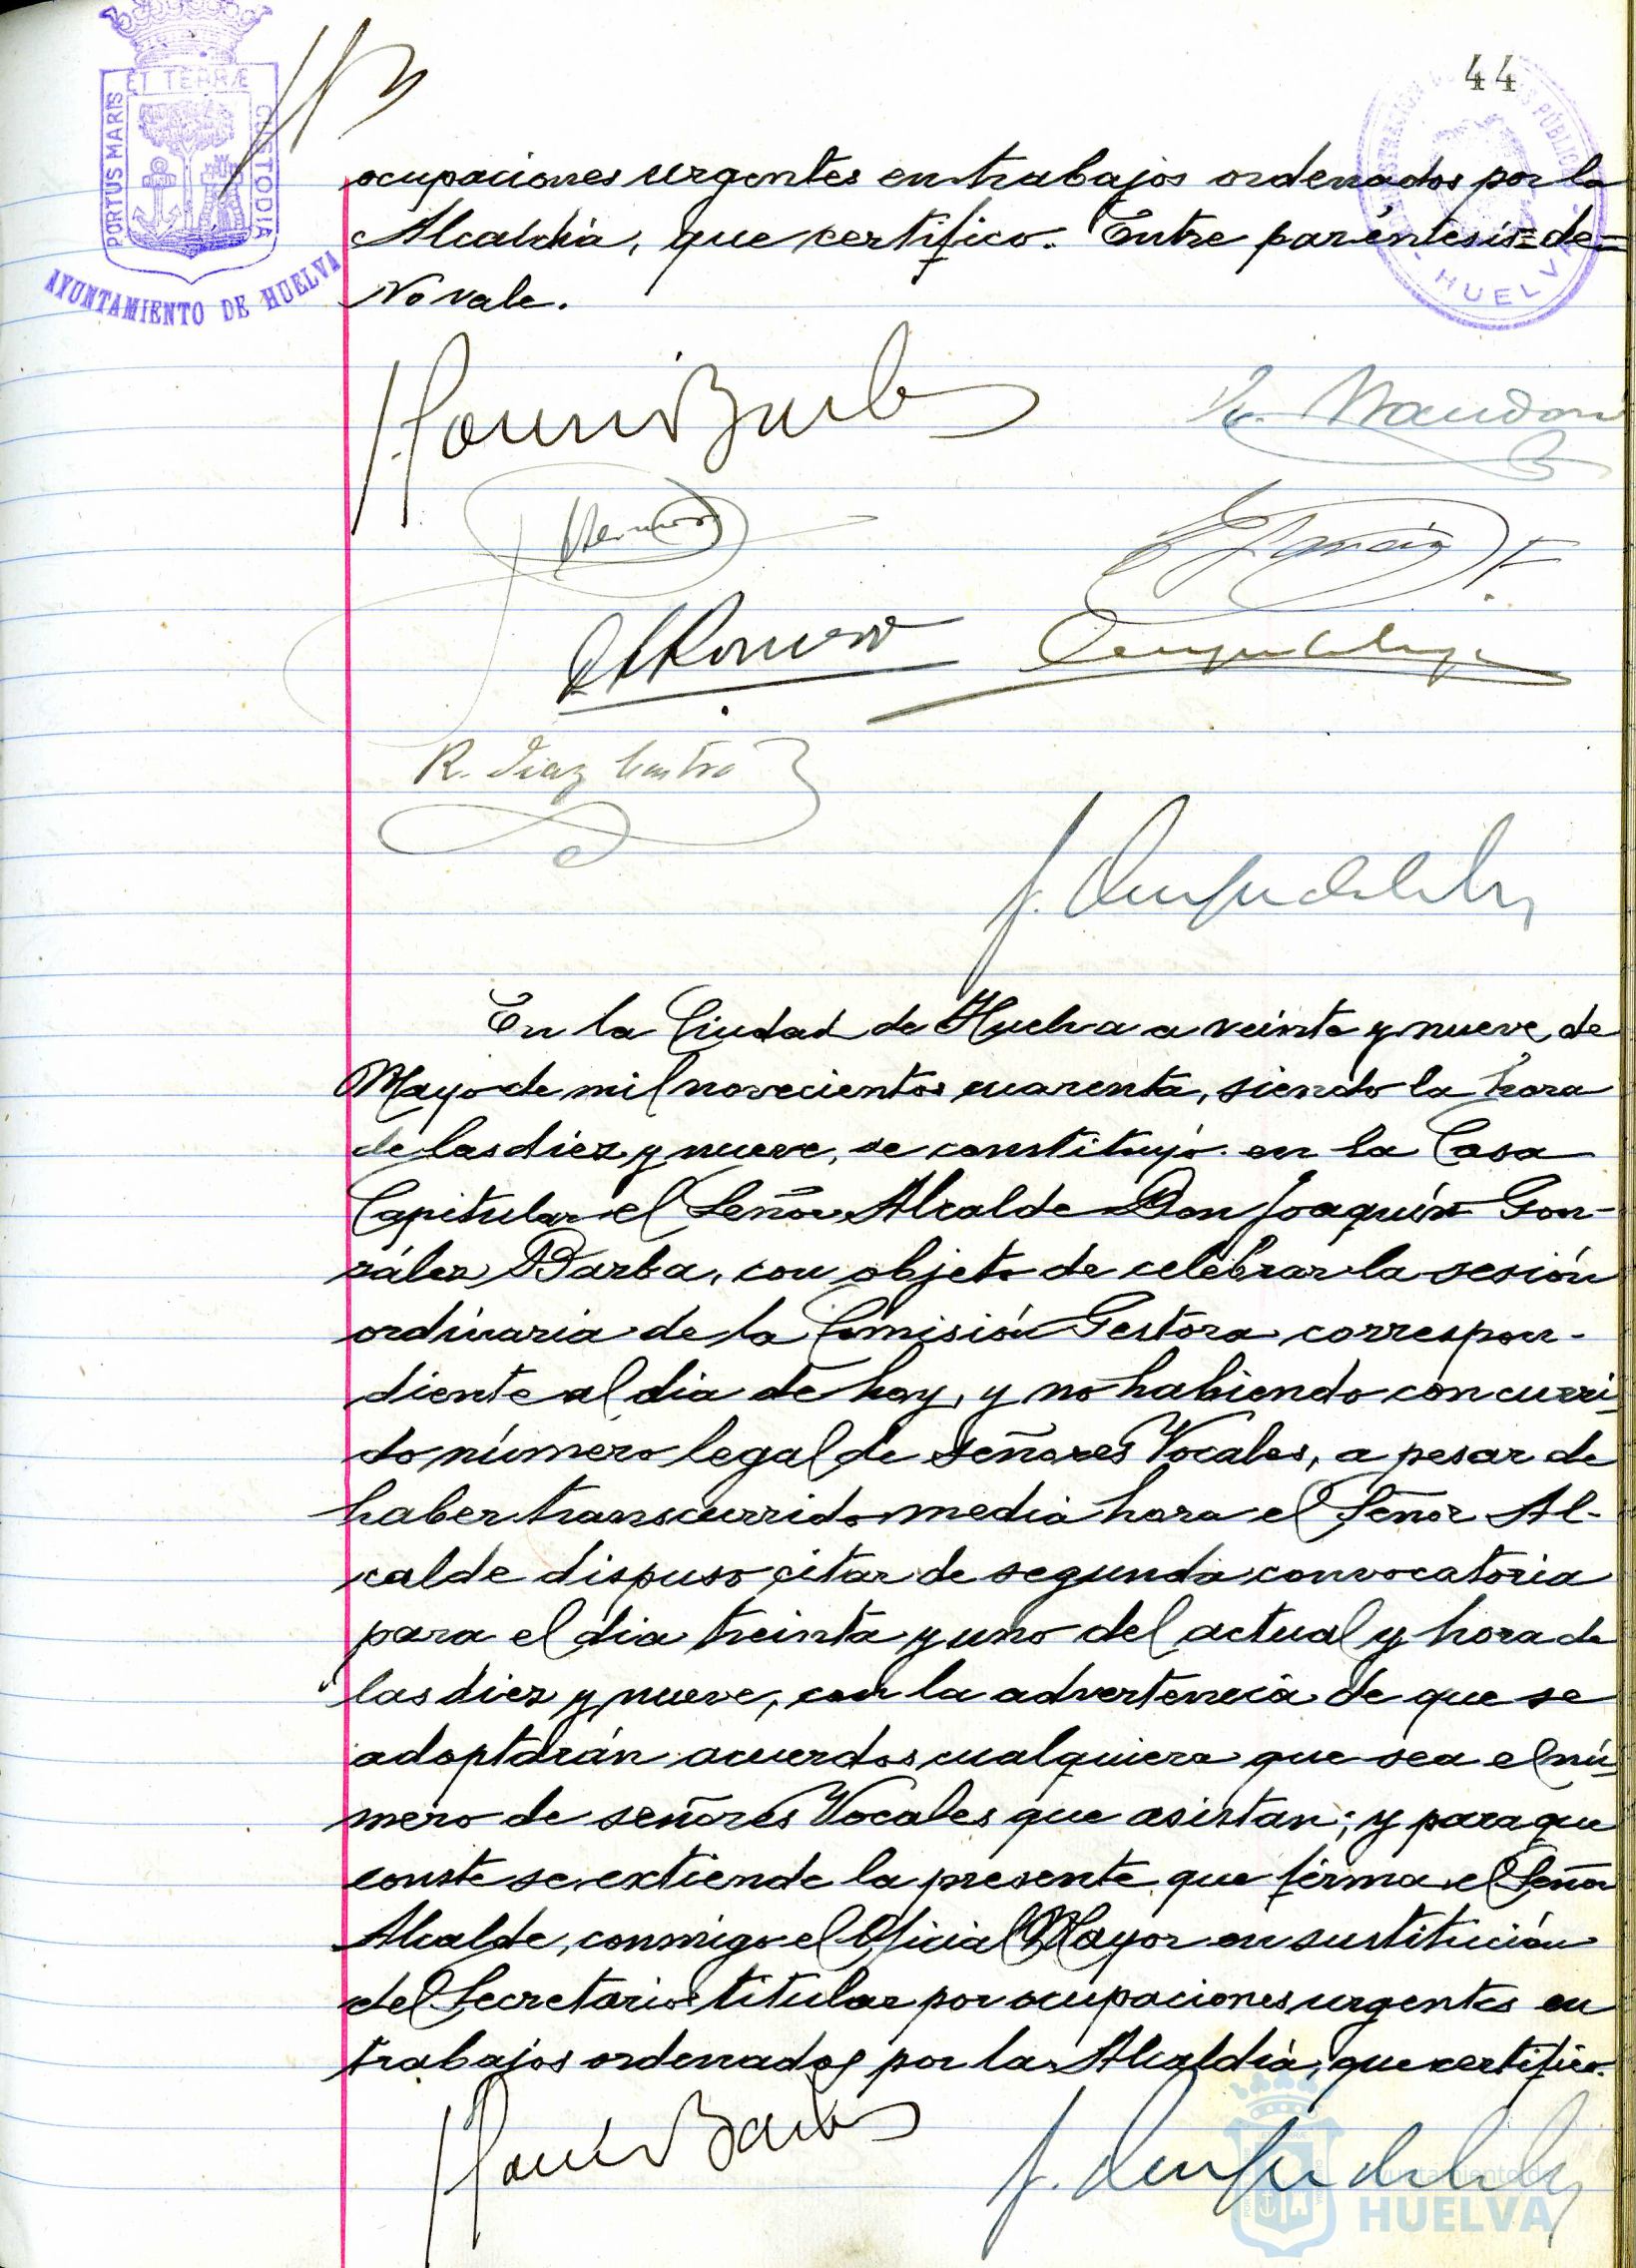 44
ET TERRÆ
PORTUS MARIS
CUSTODIA
AYUNTAMIENTO DE HUELVA
HUELVA
ocupaciones urgentes en trabajos ordenados por la
Alcaldía, que certifico. Entre paréntesis=de=
No vale.
R. Diaz Castro
En la Ciudad de Huelva a veinte y nueve de
Mayo de mil novecientos cuarenta, siendo la hora
de las diez y nueve, se constituyó en la Casa
Capitular el Señor Alcalde Don Joaquín Gon-
zález Barba, con objeto de celebrar la sesión
ordinaria de la Comisión Gestora correspon-
diente al dia de hoy, y no habiendo concurri-
do número legal de señores Vocales, a pesar de
haber transcurrido media hora el Señor Al-
calde dispuso citar de segunda convocatoria
para el dia treinta y uno del actual y hora de
las diez y nueve, con la advertencia de que se
adoptarán acuerdos cualquiera que sea el nú-
mero de señores Vocales que asistan; y para que
conste se extiende la presente que firma el Señor
Alcalde, conmigo el Oficial Mayor en sustitución
del Secretario titular por ocupaciones urgentes en
trabajos ordenados por la Alcaldía, que certifico.
Ayuntamiento de
HUELVA